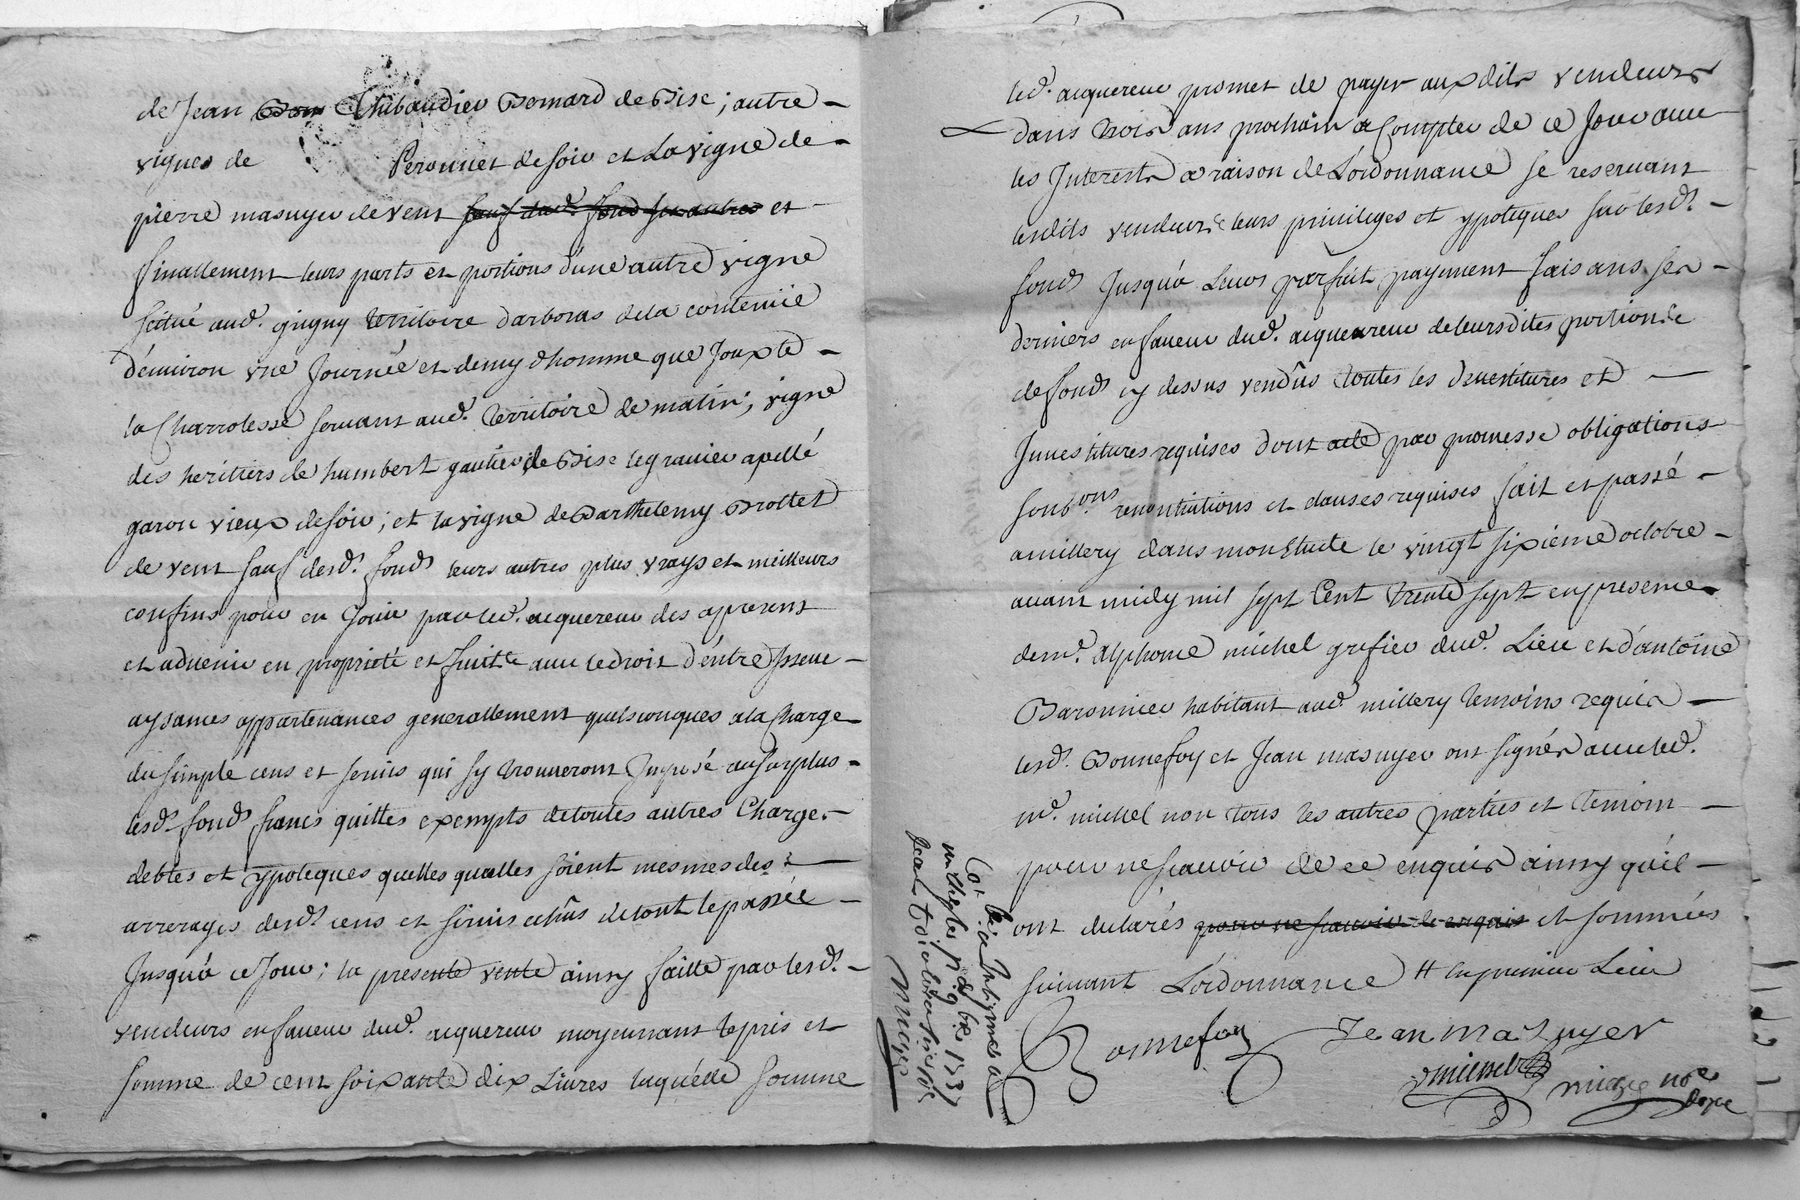 de Jean Bon Thibaudier Bomard de Bise ; autre
vignes de Peronnet de soir et La vigne de
pierre masuyer de vent sauf dud. fond ses autres et
finallement leurs parts et portions d'une autre vigne
scitué aud. grigny territoire d'arboras de la contenüe
d'environ une Journée et demy d'homme que Jouxte
la Charrolesse servant aud. territoire de matin ; vigne
des heritiers de humbert gautier de Bise le gravier apellé
garon vieux de soir ; et la vigne de Barthelemy Brottet
de vent sauf desd. fonds leurs autres plus vrays et meilleurs
confins pour en Jouir par led. acquereur des apresent
et advenir en proprieté et fruitte avec le droit d'entré Issüe
aysances appartenances generallement quelsconques a la Charge
du simple cens et servis qui sy trouveront Imposé au surplus
lesd. fonds francs quittes exempts de toutes autres Charges
debtes et ypoteques quelles quelles soient mesmes des
arrerages desd. cens et servis echûs de tout le passée
Jusqu'à ce Jour ; la presente vente ainsy faitte par lesd.
vendeurs en faveur dud. acquereur moyennant le prix et
somme de cent soixante dix Livres laquelle somme
led. acquereur promet de payer auxdits vendeurs
dans trois ans prochain a Compter de ce Jour avec
les Interests a raison de L'ordonnance se reservant
lesdits vendeurs leurs privileges et ypoteques sur lesd.
fonds Jusqu'à Leur parfait payement faisans ses
derniers en faveur dud. acquereur de leursdites portions
de fonds cy dessus vendûs toutes les devestitures et
Jnvestitures requises dont acte par promesse obligations
soub.ons renontiations et clauses requises fait et passé
a millery dans mon Etude le vingt sixieme octobre
avant midy mil sept Cent trente sept en presence
de m.e Alphonce michel grefier dud. Lieu et d'antoine
Baronnier habitant aud. millery temoins requis
lesd. Bonnefoy et Jean masuyer ont signés avec led.
m.e michel non tous les autres parties et temoin
pour ne scavoir de ce enquis ainsy qu'il
ont declarés pour ne scavoir de ce enquis et sommés
suivant L'ordonnance
Bonnefoy
Jean Masuyer
Michel
not.re